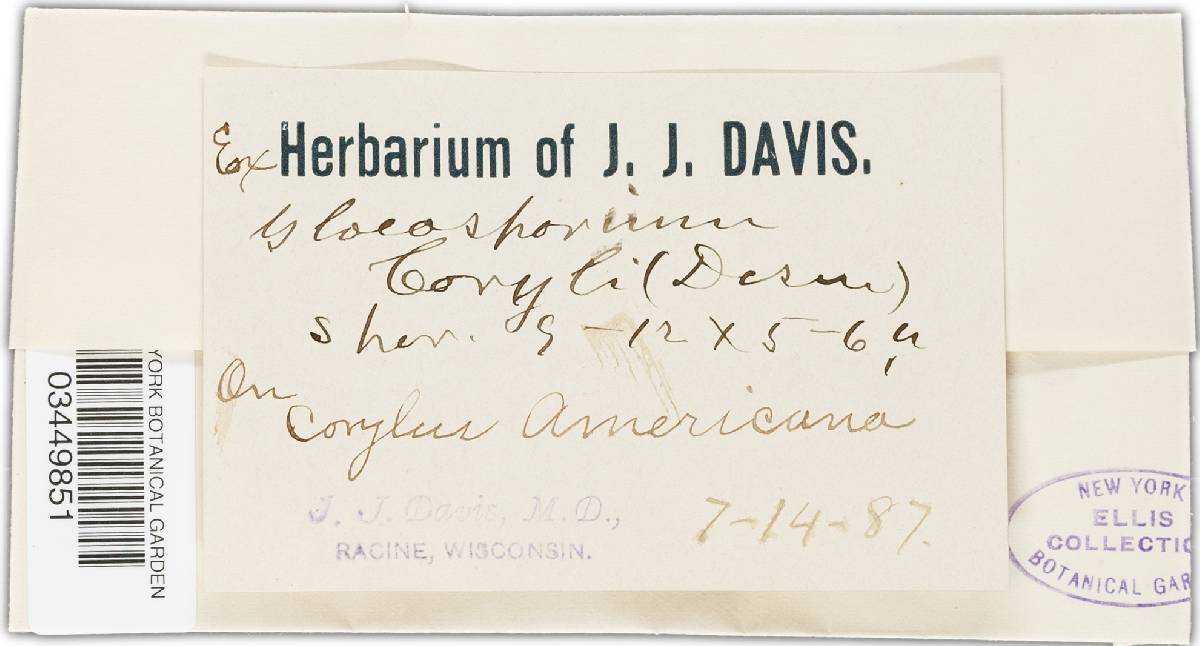 Ex Herbarium of J. J. DAVIS.
Gloeosporium
Coryli (Desm)
spor. 9-12 X 5-6 µ
On
Corylus Americana
J. J. Davis, M.D.,
RACINE, WISCONSIN.
7-14-87.
YORK BOTANICAL GARDEN
03449851
NEW YORK
ELLIS
COLLECTIO
BOTANICAL GAR